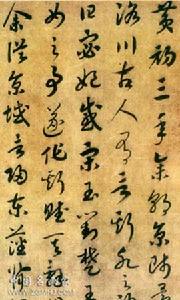 黄初三年余朝京師還
洛川古人有言斯水之
曰宓妃感宋玉對楚王
女之事遂作斯賦其辭
余從京域言歸東藩背